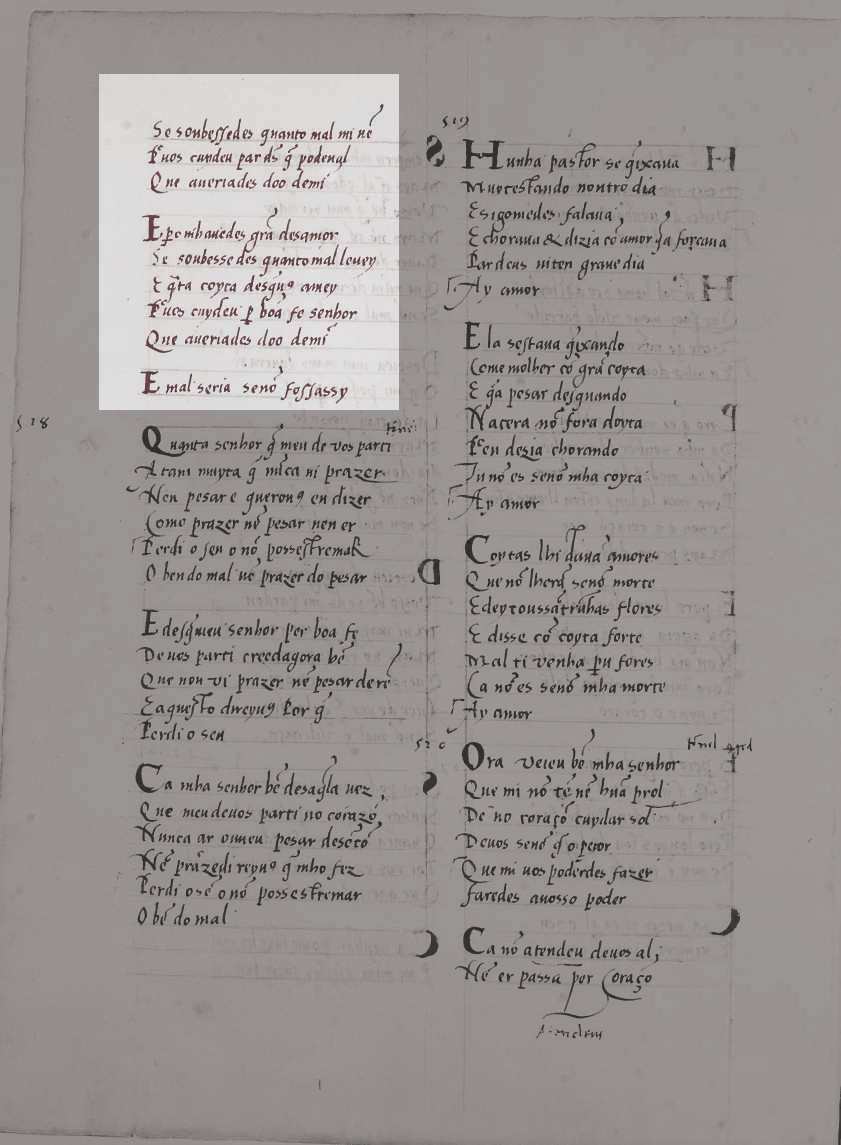 Se soubessedes quanto mal mi uẽ
Pr̃uos cuydeu par ds̃ q̃ podengl
Que aueriades doo demi
E pero mhauedes grã desamor
Se soubessedes quanto mal leuey
E q̃ta coyta desqu9 amey
Pr̃ues cuydeu p̃ boã fe senhor
Que aueriades doo demi
E mal seria senõ fossassy
518
Quanta senhor q̃ meu de vos parti
Atam muyta q̃ nũca ui prazer
Nen pesar e queron9 en dizer
Como prazer nẽ pesar nen er
Perdi o sen o nõ possestremar
O ben do mal nẽ prazer do pesar
E desq̃meu senhor per boa fe
De uos parti creedagora bẽ
Que non vi prazer nẽ pesar de rẽ
E aquesto direyu9 Por q̃
Perdi o sen
Ca mha senhor bẽ desaq̃la uez
Que meu deuos parti no corazõ
Nunca ar ouueu pesar desẽtõ
Nẽ prazedireyu9 q̃ mho fez
Perdi o sẽ o nõ possestremar
O bẽ do mal
519
Hunha pastor se q̃ixaua
Muytestando noutro dia
E sigo medes falaua
E choraua & dizia cõ amor q̃a forçaua
Par deus uiten graue dia
Ay amor
Ela sestaua q̃ixando
Come molher cõ grã coyta
E q̃a pesar desquando
Nacera nõ fora doyta
Pr̃eu dezia chorando
Tu nõ es senõ mha coyta
Ay amor
Coytas lhi dauã amores
Que nõ lherã senõ morte
E deytoussantrũhas flores
E disse cõ coyta forte
Mal ti venha pu fores
Ca nõ es senõ mha morte
Ay amor
520
Ora ueieu bẽ mha senhor
Que mi nõ tẽ nẽ hũa prol
De no coraçõ cuydar sol
De uos senõ q̃ o peror
Que mi uos poderdes fazer
Faredes auosso poder
Ca nõ atendeu deuos al
Nẽ er passa per coraço